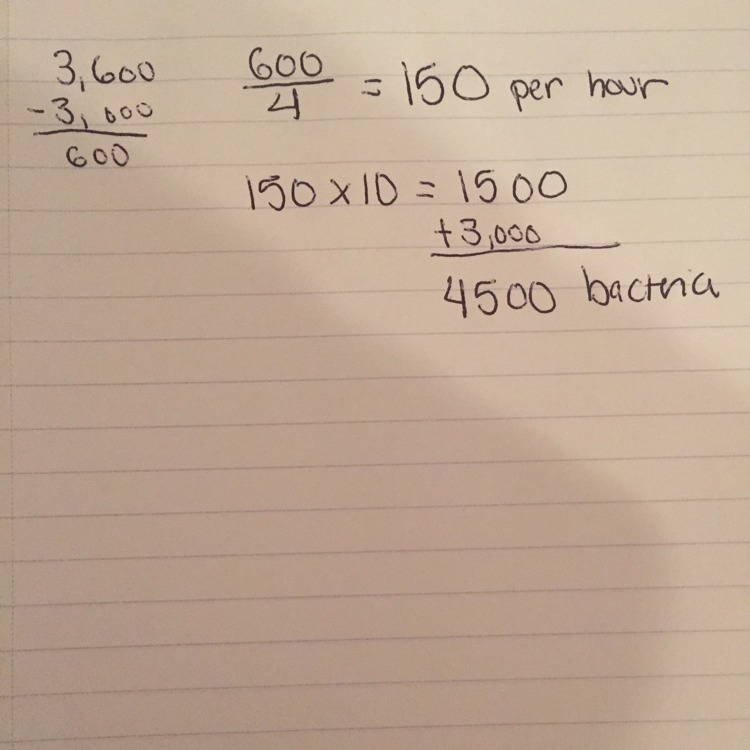 3,600
-3,000
600
600
4
= 150 per hour
150 x 10 = 1500
+3,000
4500 bacteria